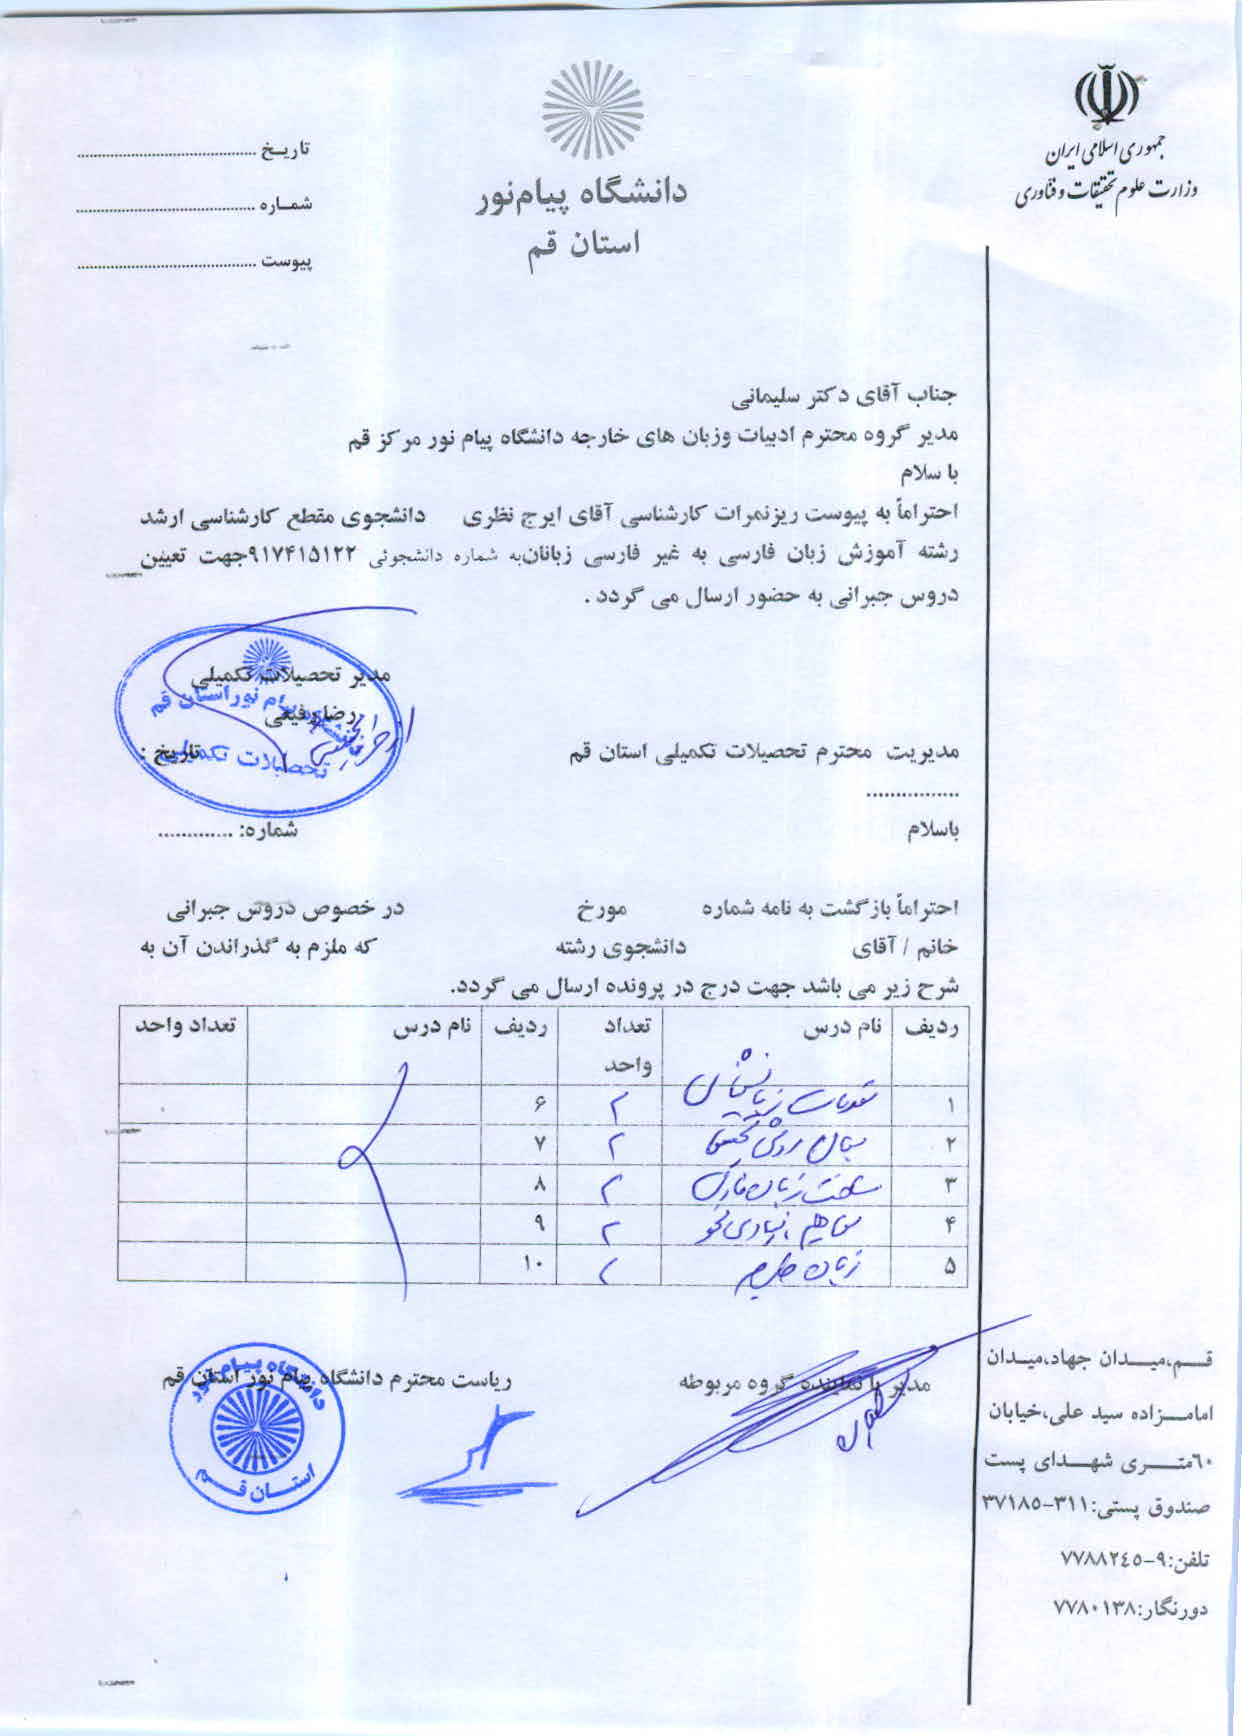 جمهوری اسلامی ایران
وزارت علوم تحقیقات و فناوری
دانشگاه پیام‌نور
استان قم
تاریـخ ........................................
شمـاره ........................................
پیوست ........................................
جناب آقای دکتر سلیمانی
مدیر گروه محترم ادبیات وزبان های خارجه دانشگاه پیام نور مرکز قم
با سلام
احتراماً به پیوست ریزنمرات کارشناسی آقای ایرج نظری دانشجوی مقطع کارشناسی ارشد
رشته آموزش زبان فارسی به غیر فارسی زبانان‌به شماره دانشجوئی ۹۱۷۴۱۵۱۲۲جهت تعیین
دروس جبرانی به حضور ارسال می گردد .
مدیر تحصیلات تکمیلی
رضا رفیعی
دانشگاه پیام نور استان قم
تحصیلات تکمیلی
مدیریت محترم تحصیلات تکمیلی استان قم
تاریخ :
................
باسلام
شماره: .............
احتراماً بازگشت به نامه شماره مورخ در خصوص دروس جبرانی
خانم / آقای دانشجوی رشته که ملزم به گذراندن آن به
شرح زیر می باشد جهت درج در پرونده ارسال می گردد.
ردیف نام درس تعداد واحد ردیف نام درس تعداد واحد
۱ مقدمات زبانشناسی ۲ ۶
۲ روش تحقیق ۲ ۷
۳ ساخت زبان فارسی ۲ ۸
۴ مفاهیم بنیادی نحو ۲ ۹
۵ زبان ۲ ۱۰
مدیر یا نماینده گروه مربوطه
ریاست محترم دانشگاه پیام نور استان قم
دانشگاه پیام نور
استـان قـم
قــم،میــدان جهاد،میـدان
امامــزاده سید علی،خیابان
٦٠متــری شهــدای پست
صندوق پستی:۳۱۱-۳۷۱۸۵
تلفن:۹-۷۷۸۸۲٤٥
دورنگار:۷۷۸۰۱۳۸